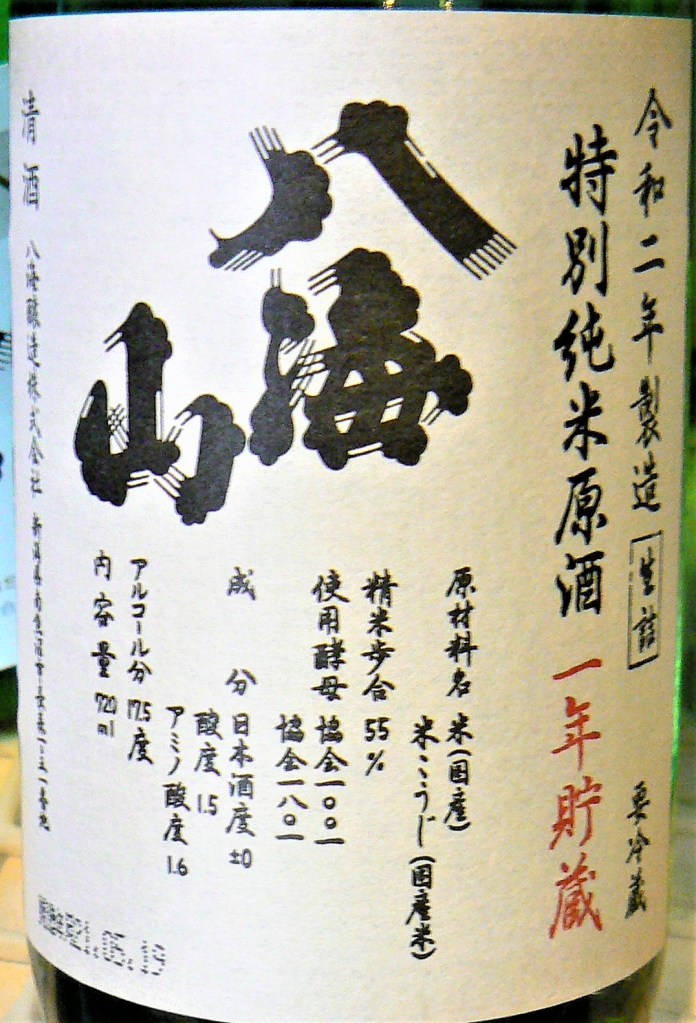 令和二年製造 生詰
要冷蔵
特別純米原酒 一年貯蔵
八海山
原材料名 米(国産)
米こうじ(国産米)
精米歩合 55%
使用酵母 協会一〇〇一
協会一八〇一
成分 日本酒度 ±0
酸度 1.5
アミノ酸度 1.6
アルコール分 17.5度
内容量 720ml
清酒 八海醸造株式会社 新潟県南魚沼市長森一〇五一番地
製造年月21.05.19